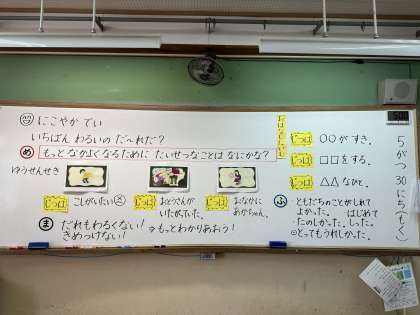 にこやか でい
いちばん わるいの だ〜れだ？
め もっと なかよくなるために たいせつなことは なにかな？
ゆうせんせき
じつは こしがいたい
じつは おとうさんが
いたがっていた。
じつは おなかに
あかちゃん。
ま だれもわるくない！
きめつけない！
→もっとわかりあおう！
じつは ○○が すき。
じつは □□をする。
じつは △△なひと。
ふ ・ともだちのことがしれて
よかった。 はじめて
・たのしかった。しった。
◎とってもうれしかった。
5がつ30にち(もく)